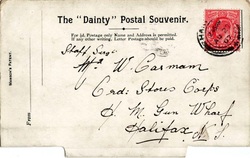 The "Dainty" Postal Souvenir.
For ½d. Postage only Name and Address is permitted.
If any other writing, Letter Postage should be paid.
Staff Serg
W. Carmam
Ord: Stores Corps
H M Gun Wharf
Halifax N. S.
From